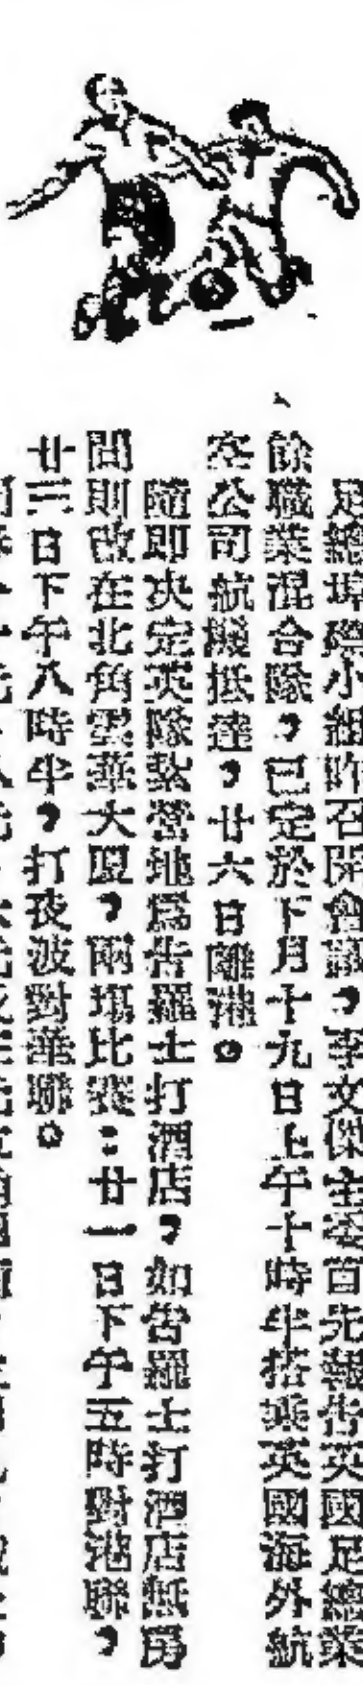 足總埠際小組昨召開會議，李文傑主委首先報告英國足總業
餘職業混合隊，已定於下月十九日上午十時半搭乘英國海外航
空公司航機抵達，廿六日離港。
隨即決定英隊紮營地爲告羅士打酒店，如告羅士打酒店無房
間則改在北角雲華大厦，兩塲比賽：廿一日下午五時對港聯，
廿三日下午八時半，打夜波對華聯。